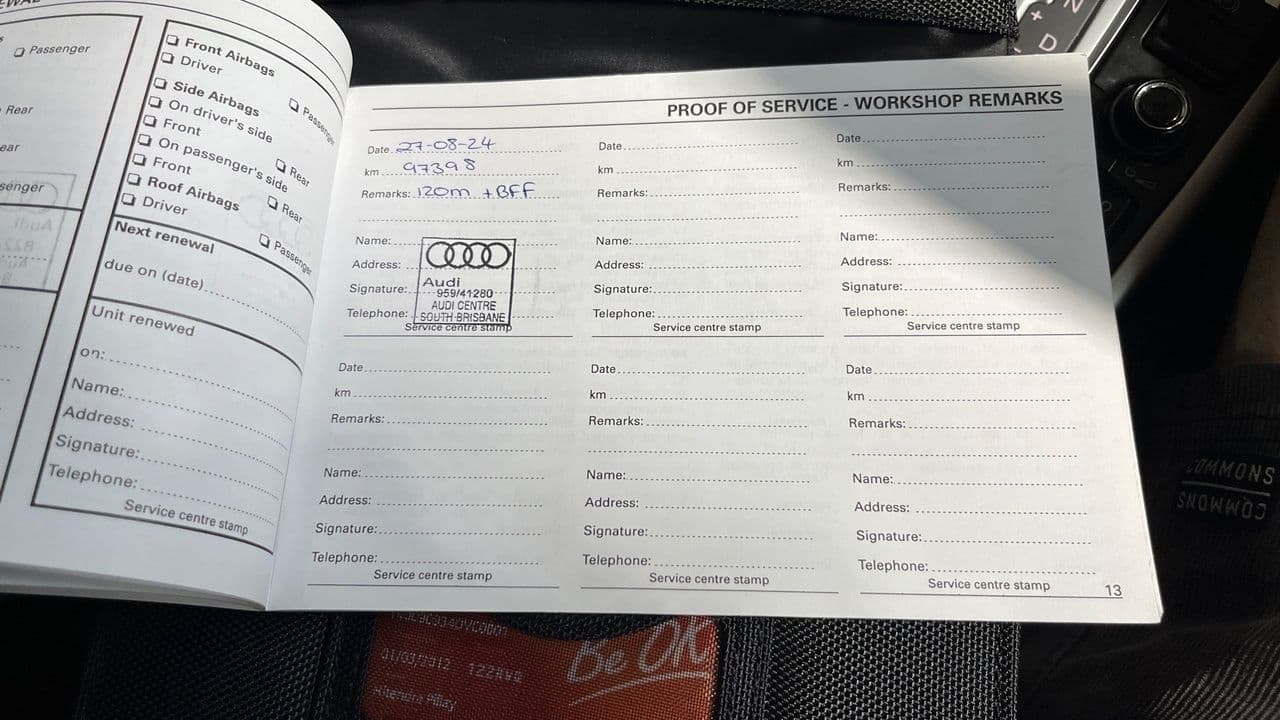 Passenger
Rear
Front Airbags
Driver
Passenger
Side Airbags
On driver's side
Front
Rear
On passenger's side
Front
Rear
Roof Airbags
Driver
Passenger
Next renewal
due on (date)
Unit renewed
on:
Name:
Address:
Signature:
Telephone:
Service centre stamp
PROOF OF SERVICE - WORKSHOP REMARKS
Date 27-08-24
km 97398
Remarks: 120m +BFF
Name:
Address:
Signature:
Telephone:
Audi
959/41280
AUDI CENTRE
SOUTH BRISBANE
Service centre stamp
Date
km
Remarks:
Name:
Address:
Signature:
Telephone:
Service centre stamp
Date
km
Remarks:
Name:
Address:
Signature:
Telephone:
Service centre stamp
Date
km
Remarks:
Name:
Address:
Signature:
Telephone:
Service centre stamp
Date
km
Remarks:
Name:
Address:
Signature:
Telephone:
Service centre stamp
Date
km
Remarks:
Name:
Address:
Signature:
Telephone:
Service centre stamp
13
N
+
D
COMMONS
COMMONS
Be OK
01/03/2012